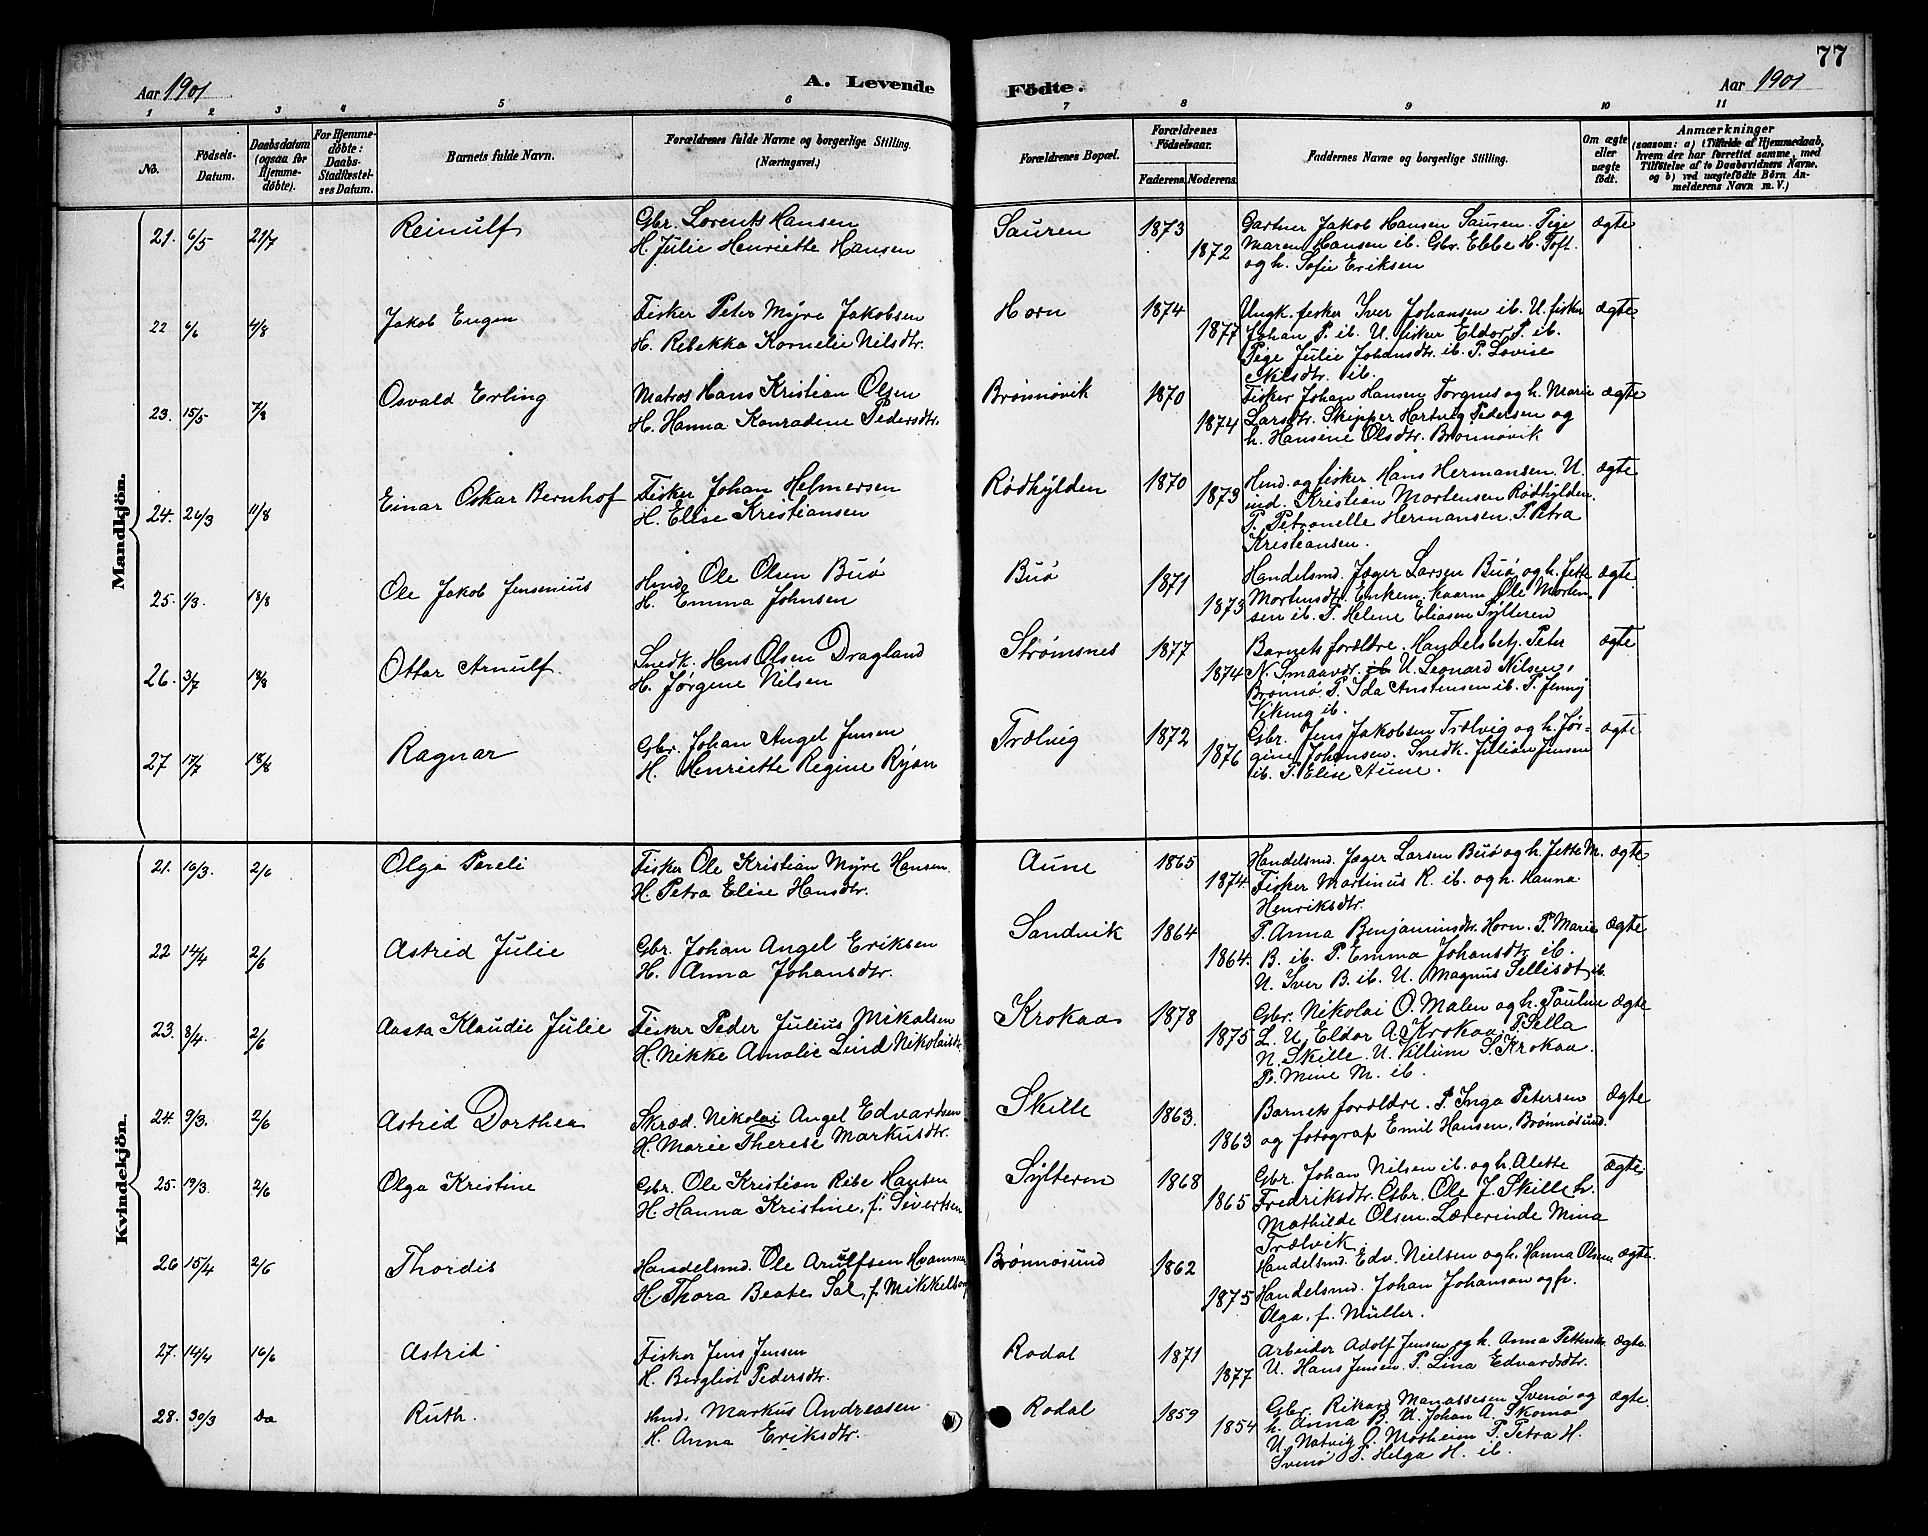 77
Aar 1901
A. Levende
Födte.
Aar 1901
1 2 3 4 5 6 7 8 9 10 11
No.
Födsels-
Datum.
Daabsdatum
(ogsaa for
Hjemme-
döbte).
For Hjemme-
döbte:
Daabs-
Stadfæstel-
ses Datum.
Barnets fulde Navn.
Forældrenes fulde Navne og borgerlige Stilling.
(Næringsvei.)
Forældrenes Bopæl.
Forældrenes
Födselsaar.
Faderens. Moderens.
Faddernes Navne og borgerlige Stilling.
Om ægte
eller
uægte
födt.
Anmærkninger
(saasom: a) i Tilfælde af Hjemmedaab,
hvem der har forrettet samme, med
Tilföielse af to Daabsvidners Navne.
og b) ved uægtefödte Börn An-
melderens Navn m. V.)
Mandkjön.
21. 6/5 21/7 Reinulf
Gbr. Lorents Hansen
H. Julie Henriette Hansen
Sauren 1873 1872
Gartner Jakob Hansen Sauren. Pige
Maren Hansen ib. Gbr. Ebbe H. Toft
og h. Sofie Eriksen
ægte
22 6/6 4/8 Jakob Eugen
Fisker Peter Myre Jakobsen
H. Rebekka Kornelie Nilsdtr.
Horn 1874 1877
Ungk. fisker Iver Johansen ib. U. fisker
Johan P. ib. U. fisker Eldor P. ib.
Pige Julie Johansdtr. ib. P. Lovise
Nilsdtr. ib.
ægte
23. 15/5 7/8 Osvald Erling
Matros Hans Kristian Olsen
H. Hanna Konradene Pedersdtr.
Brønnøvik 1870 1874
Fisker Johan Hansen Torgnes og h. Marie
Larsdtr. Skipper Hartvig Pedersen og
h. Hansene Olsdtr. Brønnøvik
ægte
24. 26/3 11/8 Einar Oskar Bernhof
Fisker Johan Helmersen
H. Elise Kristiansen
Rødhylden 1870 1873
Hmd. og fisker Hans Hermansen. U.
ind. Kristian Mortensen Rødhylden.
P. Petronelle Hermansen. P. Petra
Kristiansen.
ægte
25. 1/3. 18/8 Ole Jakob Jensenius
Hmd. Ole Olsen Buø
H. Emma Johnsen
Buø 1871 1873
Handelsmd. Jæger Larsen Buø og h. Jette
Mortensdtr. Enkem. kaarm. Ole Morten
sen ib. P. Helene Eliasen Sylteren
ægte
26. 3/7 18/8 Ottar Arnulf.
Snedk. Hans Olsen Dragland
H. Jørgine Nilsen
Strømsnes 1877 1874
Barnets forældre. Handelsbetj. Peter
N. Smaavdt. ib U. Leonard Nilsen,
Brønnø. P. Ida Anstensen ib. P. Jenny
Viking ib.
ægte
27 17/7 18/8 Ragnar
Gbr. Johan Angel Jensen
H. Henriette Regine Ryan
Trælvig 1872 1876
Gbr. Jens Jakobsen Trælvig og h. Jør-
gine Johansen. Snedk. Julian Jensen
ib. P. Elise Aune.
ægte
Kvindekjön.
21. 16/3. 2/6 Olga Pareli
Fisker Ole Kristian Myre Hansen
H. Petra Elise Hansdtr.
Aune 1865 1874
Handelsmd. Jæger Larsen Buø og h. Jette M.
Fisker Martinus R. ib. og h. Hanna
Henriksdtr.
ægte
22 14/4 2/6 Astrid Julie
Gbr. Johan Angel Eriksen
H. Anna Johansdtr.
Sandvik 1864 1864.
P. Anna Benjaminsdtr. Horn. P. Marie
B. ib. P. Emma Johansdtr ib.
U. Iver B. ib. U. Magnus Sellisdt ib.
ægte
23. 8/4. 2/6 Aasta Klaudie Julie
Fisker Peder Julius Mikalsen
H. Nikke Amalie Lind Nikolaisdt.
Krokaa 1878 1875
Gbr. Nikolai O. Malen og h. Pauline
L. U. Eldor A. Krokaa. P. Sella
N. Skille. U. Villum S. Krokaa.
P. Mine M. ib.
ægte
24. 9/3. 2/6 Astrid Dorthea
Skræd. Nikolai Angel Edvardsen
H. Marie Therese Markusdtr.
Skille 1863. 1863
Barnets forældre. P. Inga Petersen
og fotograf Emil Hansen, Brønnøsund.
ægte
25. 19/3. 2/6 Olga Kristine
Gbr. Ole Kristian Ribe Hansen
H. Hanna Kristine, f. Sivertsen
Sylteren 1868 1865
Gbr. Johan Nilsen ib. og h. Alette
Fredriksdtr. Gbr. Ole J. Skille h.
Mathilde Olsen. Lærerinde Mina
Trælvik.
ægte
26 15/4 2/6 Thordis
Handelsmd. Ole Arulfsen Hvamnes
H. Thora Beate Sal, f. Mikkelborg
Brønnøsund 1862 1875
Handelsmd. Edv. Nielsen og h. Hanna Olsen
Handelsmd. Johan Johansen og fr.
Olga, f. Müller.
ægte.
27. 14/4 16/6 Astrid
Fisker Jens Jensen
H. Bergliot Pedersdtr.
Rodal 1871 1877
Arbeider Adolf Jensen og h. Anna Petterdt.
U. Hans Jensen. P. Lina Edvardsdtr.
ægte.
28. 30/3 Do Ruth.
Hmd. Markus Andreasen
H. Anna Eriksdtr.
Rodal 1859 1854
Gbr. Rikard Manassesen Svenø og
h. Anna B. U. Johan A. Skomo
U. Natvig O. Mosheim P. Petra H.
Svenø P. Helga H. ib.
ægte